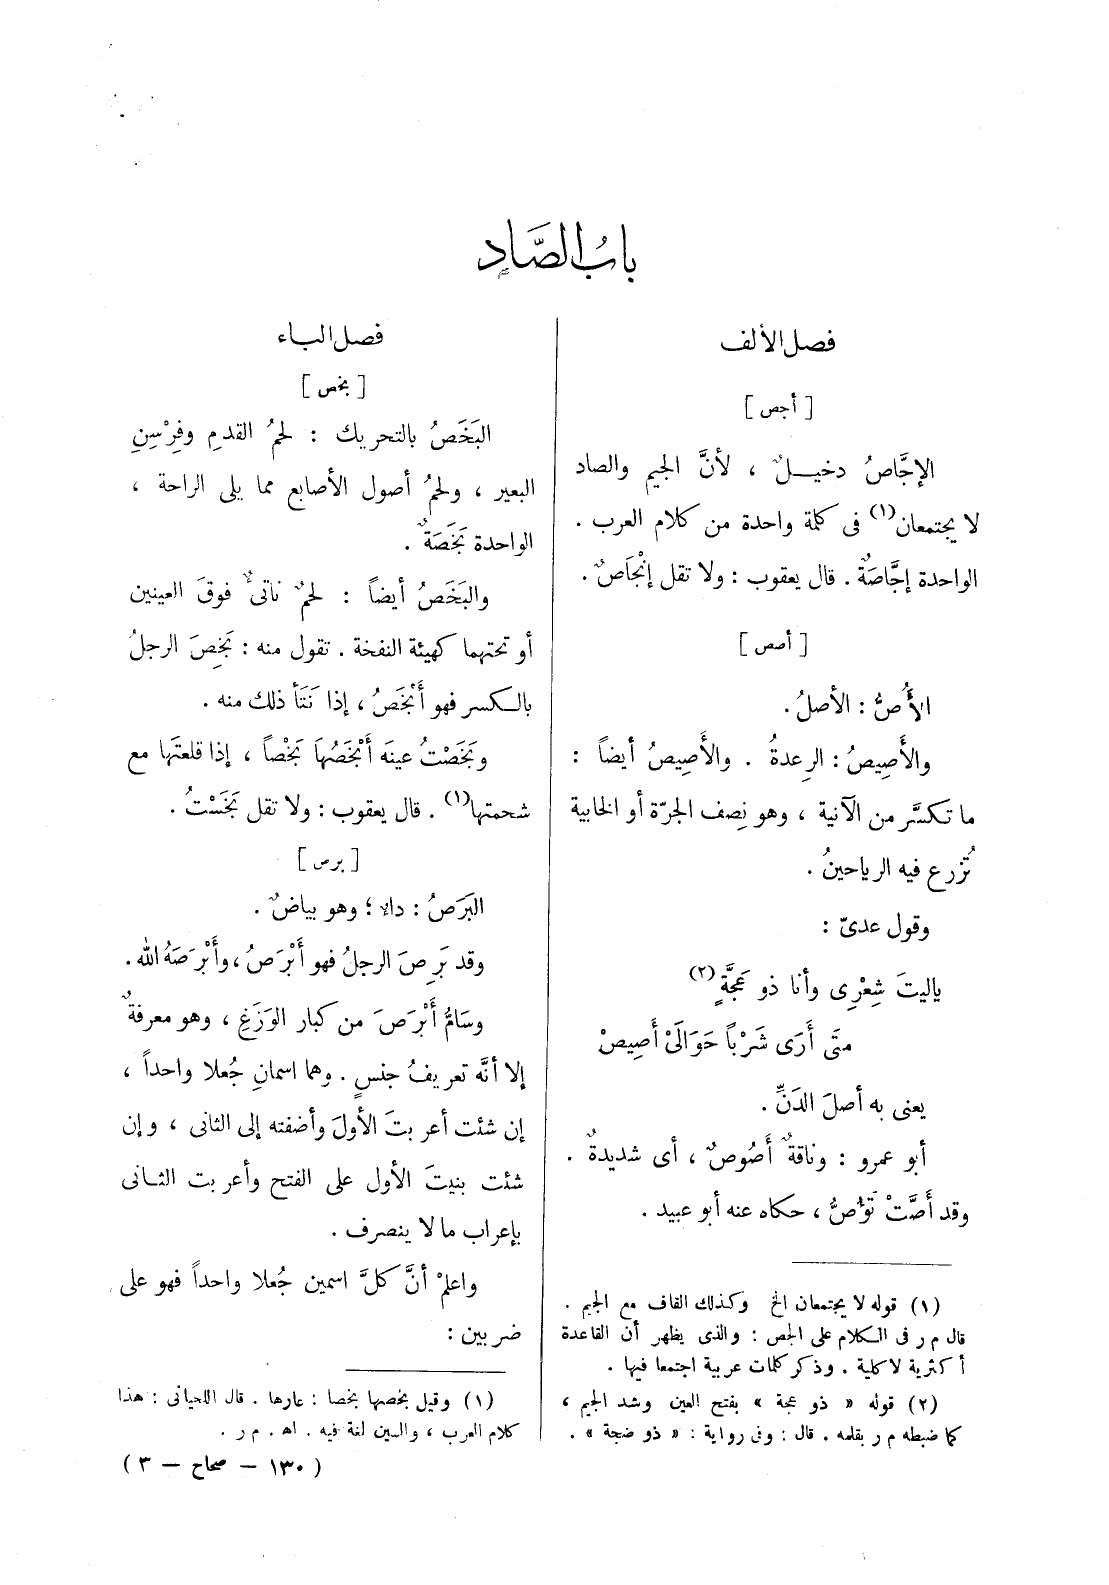 بابُ الصَّادِ
فصل الألف
[ أجص ]
الإجَّاصُ دخيـلٌ ، لأنَّ الجيم والصاد
لا يجتمعان(١) فى كلمة واحدة من كلام العرب .
الواحدة إجَّاصَةٌ . قال يعقوب : ولا تقل إنْجَاصٌ .
[ أصص ]
الأُصُّ : الأصلُ .
والأَصِيصُ : الرِعدةُ . والأَصِيصُ أيضاً :
ما تكسَّر من الآنية ، وهو نِصف الجرّة أو الخابية
تُزرع فيه الرياحينُ .
وقول عدىّ :
ياليتَ شِعْرِى وأنا ذو عَجَّةٍ(٢)
متَى أَرَى شَرْباً حَوَالَىْ أَصِيصْ
يعنى به أصلَ الدَنِّ .
أبو عمرو : وناقةٌ أَصُوصٌ ، أى شديدةٌ .
وقد أَصَّتْ تَؤُصُّ ، حكاه عنه أبو عبيد .
(١) قوله لا يجتمعان الخ وكذلك القاف مع الجيم .
قال م ر فى الكلام على الجص : والذى يظهر أن القاعدة
أكثرية لا كلية . وذكر كلمات عربية اجتمعا فيها .
(٢) قوله « ذو عجة » بفتح العين وشد الجيم ،
كما ضبطه م ر بقلمه . قال : وفى رواية : « ذو ضجة » .
فصل الباء
[ بخص ]
البَخَصُ بالتحريك : لحمُ القدمِ وفِرْسِنِ
البعير ، ولحمُ أصول الأصابع مما يلى الراحة ،
الواحدة بَخَصَةٌ .
والبَخَصُ أيضاً : لحمٌ ناتىٌٔ فوقَ العينين
أو تحتهما كهيئة النفخة . تقول منه : بَخِصَ الرجلُ
بالكسر فهو أَبْخَصُ ، إذا نَتَأَ ذلك منه .
وبَخَصْتُ عينَه أَبْخَصُهَا بَخْصاً ، إذا قلعتَها مع
شحمتها(١) . قال يعقوب : ولا تقل بَخَسْتُ .
[ برص ]
البَرَصُ : دالا ؛ وهو بياضٌ .
وقد بَرِصَ الرجلُ فهو أَبْرَصُ ، وأَبْرَصَهُ الله .
وسَامُّ أَبْرَصَ من كبار الوَزَغِ ، وهو معرفةٌ
إلا أنَّه تعريفُ جنسٍ . وهما اسمانِ جُعلا واحداً ،
إن شئت أعربتَ الأولَ وأضفته إلى الثانى ، وإن
شئت بنيتَ الأول على الفتح وأعربت الثـانى
بإعراب ما لا ينصرف .
واعلمْ أنَّ كلَّ اسمين جُعلا واحداً فهو على
ضربين :
(١) وقيل بخصها بخصا : عارها . قال اللحيانى : هذا
كلام العرب ، والسين لغة فيه . اهـ . م ر .
( ١٣٠ — صحاح — ٣ )